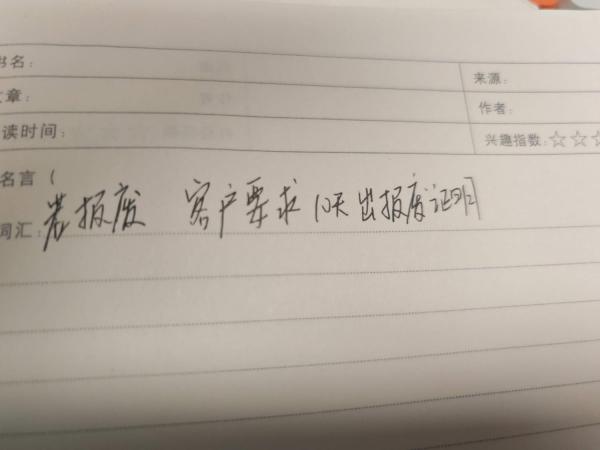 书名:
来源:
文章:
作者:
读时间:
兴趣指数:☆☆☆
名言(
词汇:
报废 客户要求10天出报废证明